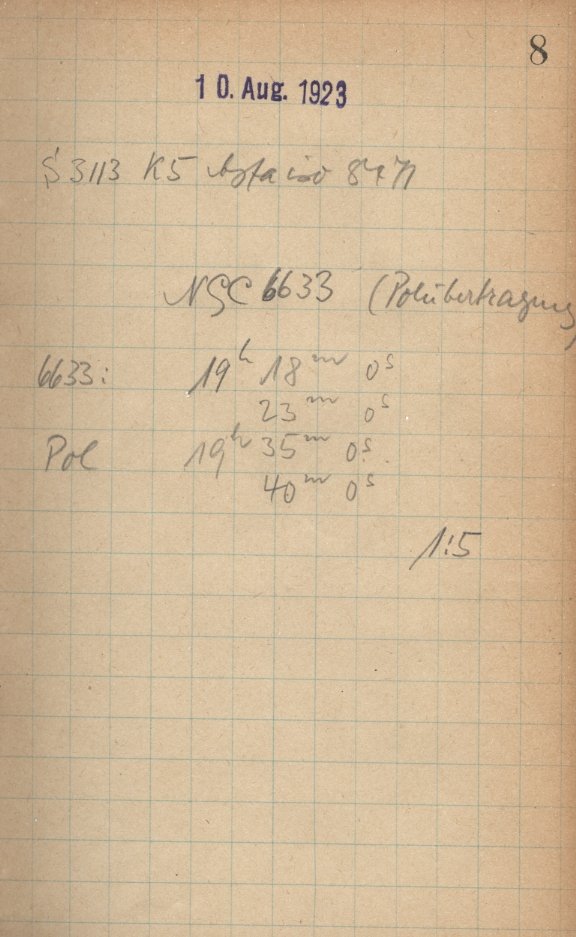 8
10. Aug. 1923
S 3113 K5 Agfa iso 8471
NGC 6633 (Polübertragung)
6633: 19h 18m 0s
23m 0s
Pol 19h 35m 0s
40m 0s
1:5